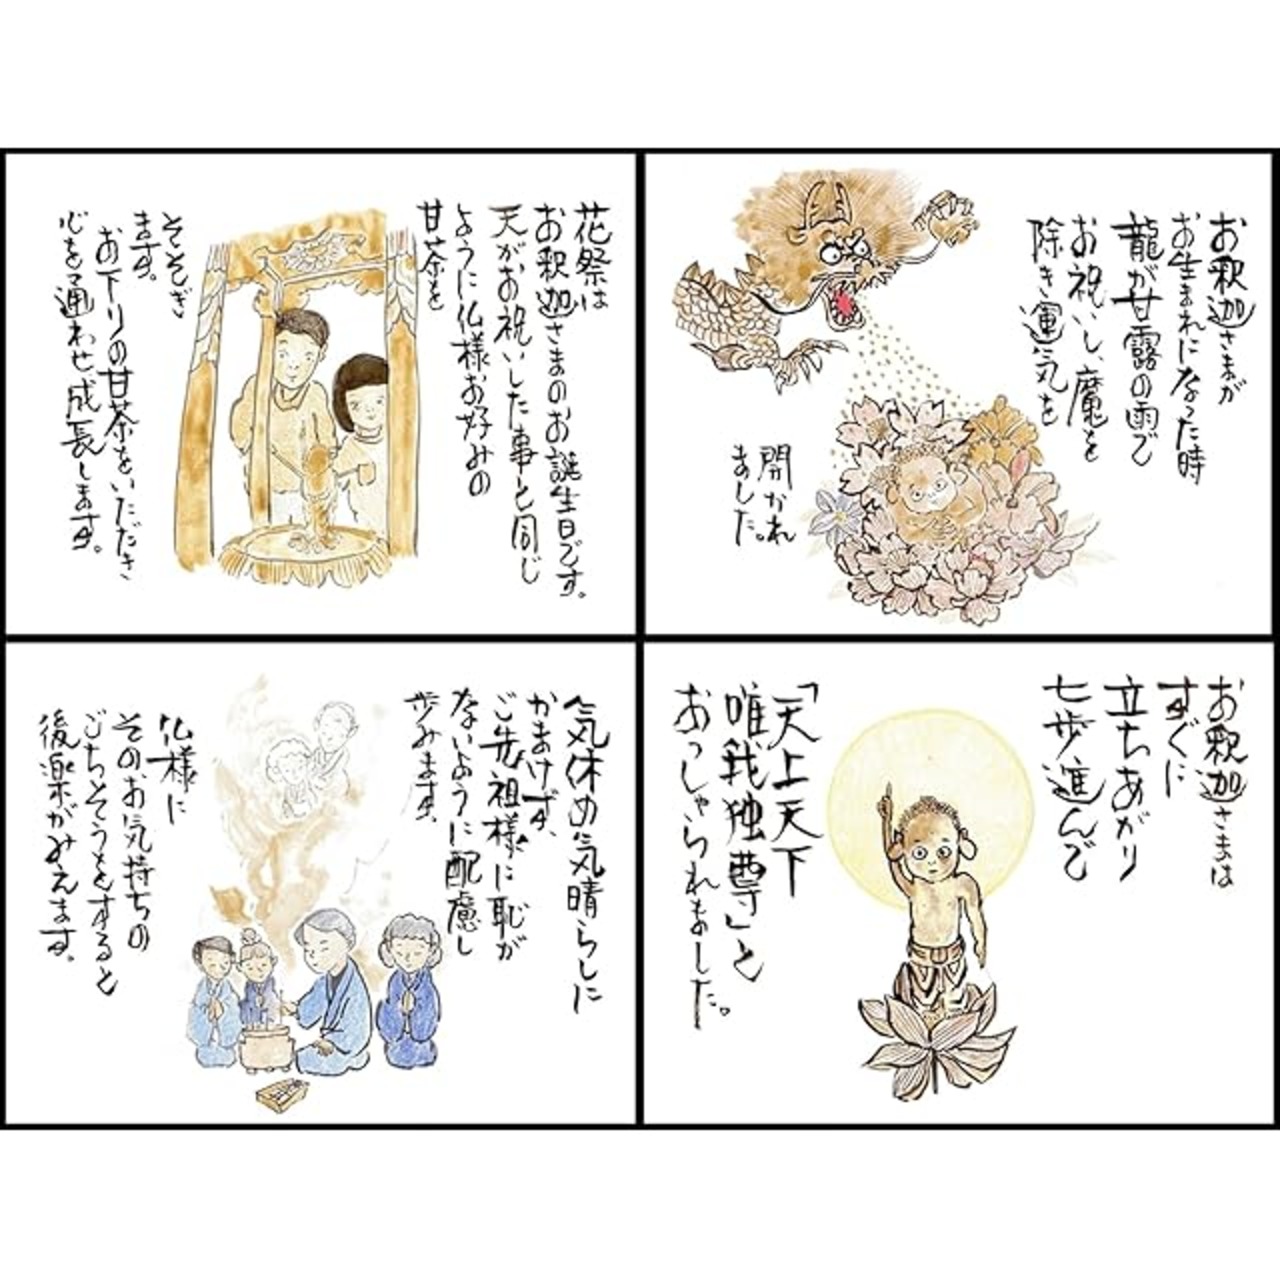 お釈迦さまが
お生まれになった時
龍が甘露の雨で
お祝いし、魔を
除き運気を
開かれ
ました。
お釈迦さまは
すぐに
立ちあがり
七歩進んで
「天上天下
唯我独尊」と
おっしゃられました。
花祭は
お釈迦さまのお誕生日です。
天がお祝いした事と同じ
ように仏様お好みの
甘茶を
そそぎ
ます。
お下りの甘茶をいただき
心を通わせ成長します。
気休め気晴らしに
かまけず、
ご先祖様に恥が
ないように配慮し
歩みます。
仏様に
そのお気持ちの
ごちそうをすると
後楽がみえます。